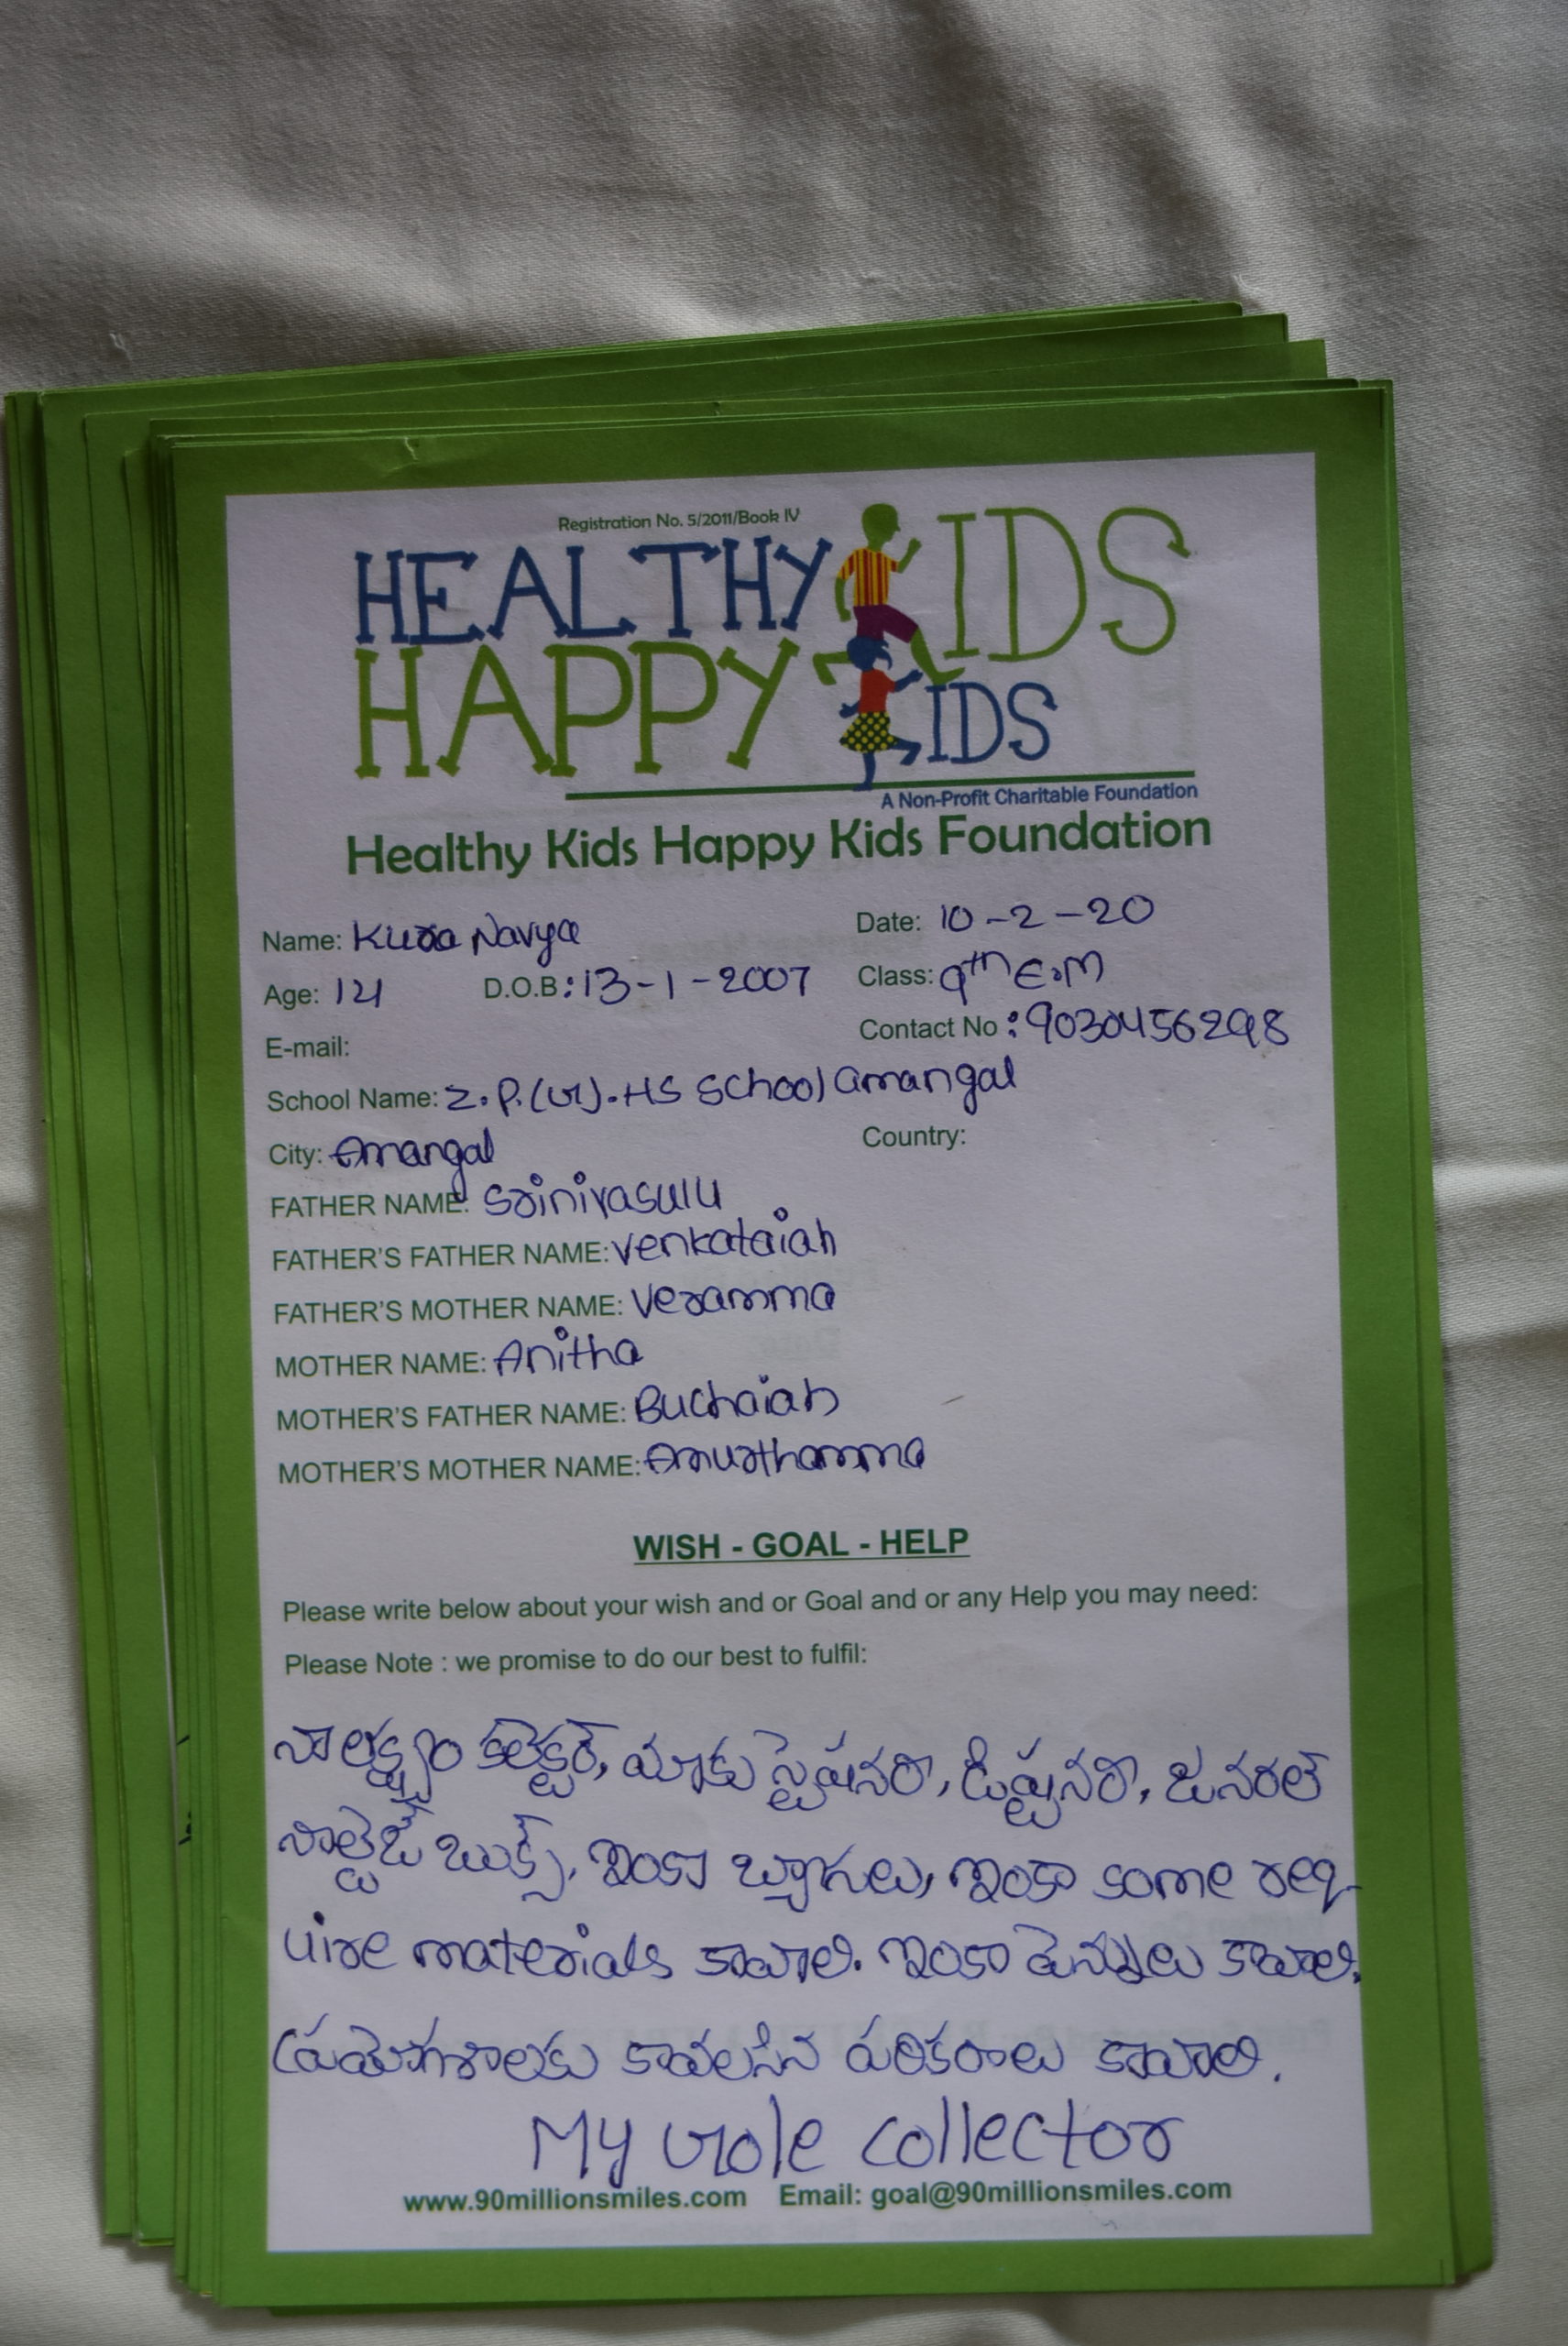 Registration No. 5/2011/Book IV
HEALTHY KIDS
HAPPY KIDS
A Non-Profit Charitable Foundation
Healthy Kids Happy Kids Foundation
Name: Kura Navya Date: 10-2-20
Age: 14 D.O.B: 13-1-2007 Class: 9th E.M
E-mail: Contact No: 9030456298
School Name: Z.P.(G).HS School amangal
City: Amangal Country:
FATHER NAME: Srinivasulu
FATHER'S FATHER NAME: Venkataiah
FATHER'S MOTHER NAME: Veramma
MOTHER NAME: Anitha
MOTHER'S FATHER NAME: Buchaiah
MOTHER'S MOTHER NAME: Amurthamma
WISH - GOAL - HELP
Please write below about your wish and or Goal and or any Help you may need:
Please Note : we promise to do our best to fulfil:
నా లక్ష్యం కలెక్టర్, మాకు స్టైషనరీ, డిష్ఫనరీ, జనరల్
నాల్డెజ్ బుక్స్, ఇంకా బ్యాగులు, ఇంకా some req
uire materials కావాలి. ఇంకా పెన్నులు కావాలి.
ప్రయోగశాలకు కావలసిన పరికరాలు కావాలి.
My Gole collector
www.90millionsmiles.com Email: goal@90millionsmiles.com